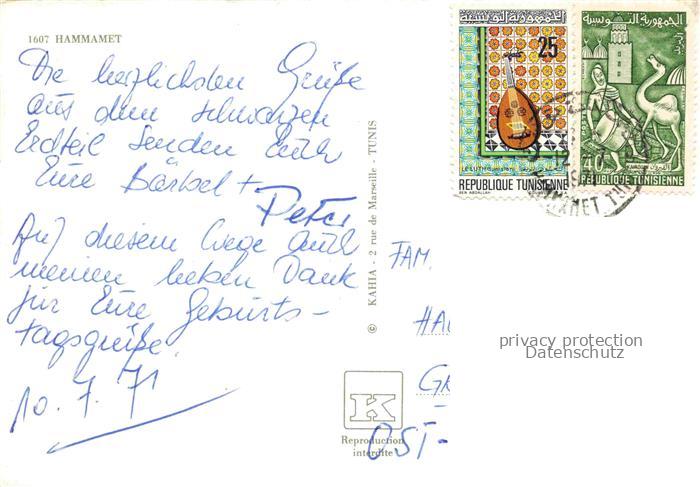 1607 HAMMAMET
Die herzlichsten Grüße
aus dem schwarzen
Erdteil senden Euch
Eure Bärbel +
Peter
Auf diesem Wege auch
meinen lieben Dank
für Eure Geburts-
tagsgrüße.
10.7.71
© KAHIA - 2 rue de Marseille - TUNIS
K
Reproduction
interdite
الجمهورية التونسية
25
REPUBLIQUE TUNISIENNE
الجمهورية التونسية
40
REPUBLIQUE TUNISIENNE
FAM.
HA
GR
OST-
privacy protection
Datenschutz